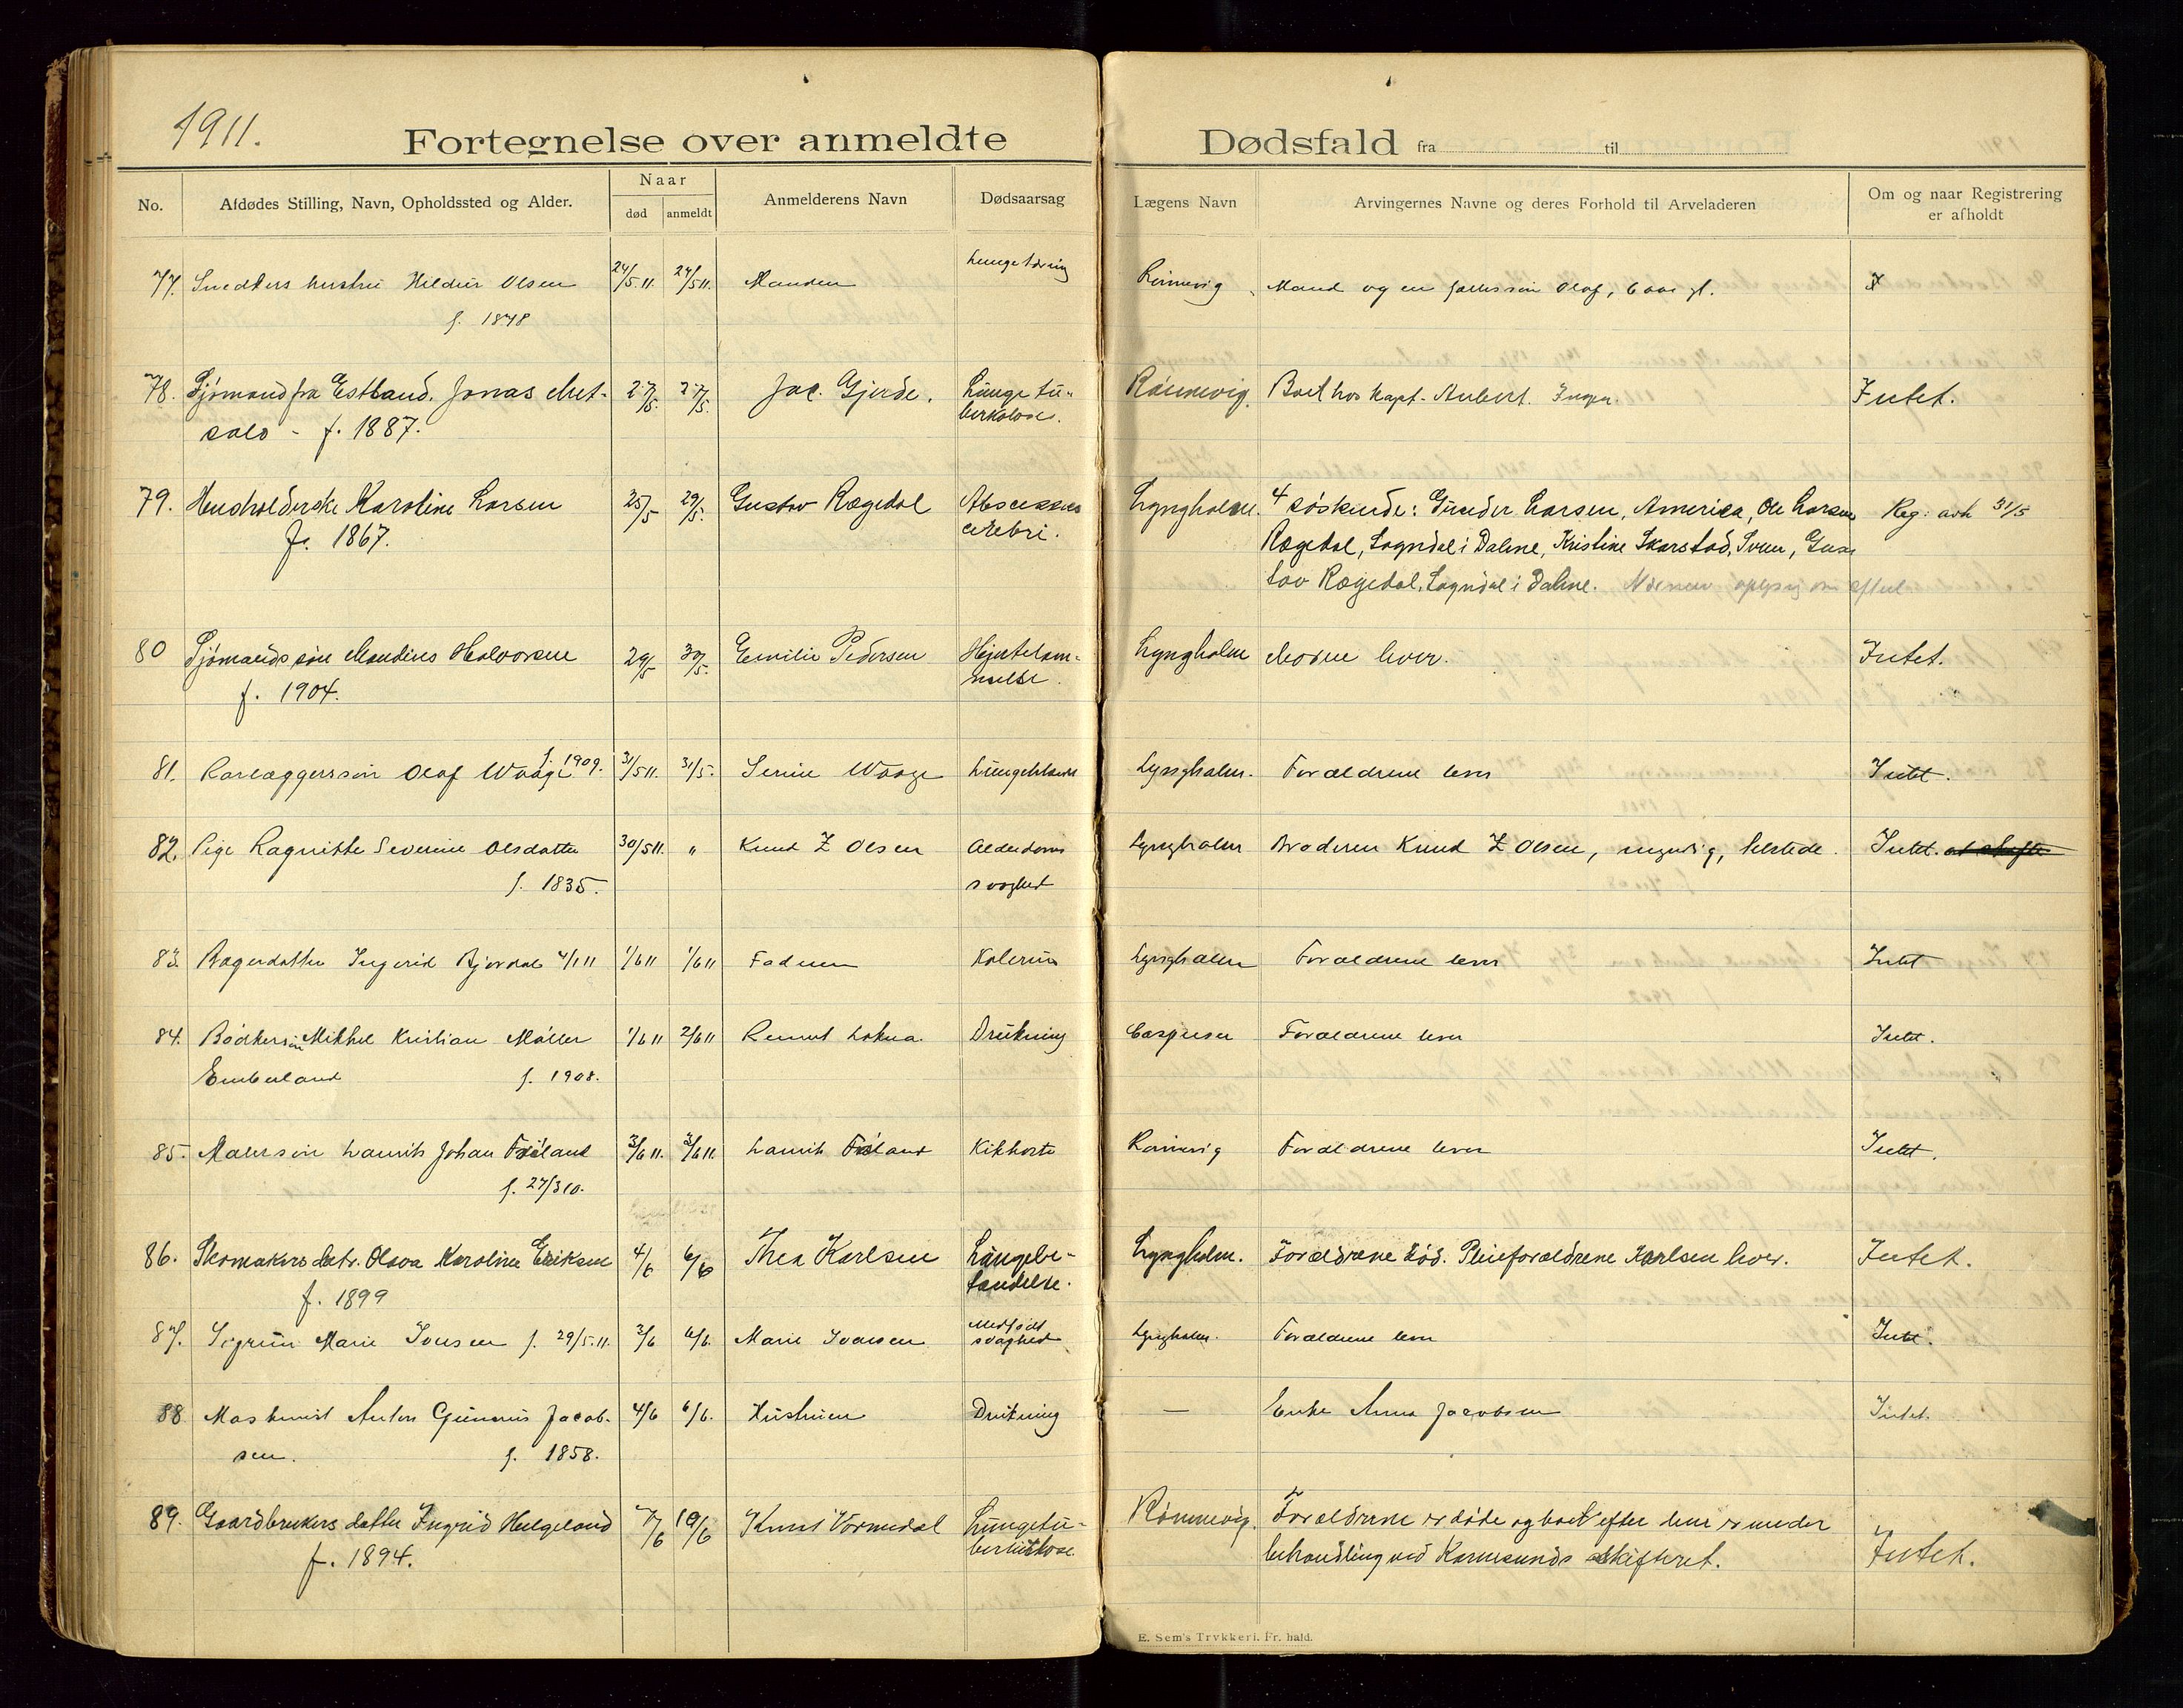 1911.
Fortegnelse over anmeldte Dødsfald fra til
No. Afdødes Stilling, Navn, Opholdssted og Alder. Naar død anmeldt Anmelderens Navn Dødsaarsag Lægens Navn Arvingernes Navne og deres Forhold til Arveladeren Om og naar Registrering er afholdt
77. Snedkers hustru Hildur Olsen 24/5 11. 24/5 11. Manden Lungetæring Rönnevig Mand og en fælles sön Olaf, 6 aar gl.
f. 1878
78. Sjømand fra Estland. Jonas Met- 27/5. 27/5. Jac. Gjerde. Lungetu- Rönnevig. Boet hos Kapt. Aubert. Intet.
salo - f. 1887. berkolose.
79. Husholderske Karoline Larsen 25/5 29/5. Gustav Rægedal Abscessus Lyngholm. 4 søskende: Gunder Larsen, America, Ole Larsen Reg: avh 31/5
f. 1867. cerebri. Rægedal, Sogndal i Dalene, Kristine Skarstad, Gus
tav Rægedal, Sogndal i Dalene.
80 Sjømands søn Maudius Halvorsen 29/5 30/5. Emilie Pedersen Hjertelam- Lyngholm Moren lever. Intet.
f. 1904. melse.
81. Olaf Waage f. 1909. 31/5 11. 31/5. Serine Waage Lyngholm. Forældrene lever Intet.
82. Pige Ragnitte Severine Olsdatter 30/5 11. " Knud Z Olsen Alderdoms Lyngholm Broderen Knud Z Olsen, myndig, Intet.
f. 1835. svaghed
83. Ingerid Bjordal 1/6 11 1/6 11 Faderen Kolerine Lyngholm Forældrene lever Intet
84. Bödkersön Mikkel Kristian Möller 1/6 11 2/6 11 Drukning Caspersen Forældrene lever Intet.
Emberland f. 1908.
85. Malersön Laurits Johan 3/6 11. 3/6 11. Laurits Kikhoste Rönnevig Forældrene lever Intet.
f. 27/3 10.
86. Skomakers datr. Olava Karoline Eriksen 4/6 6/6 Thea Karlsen Lungebe- Lyngholm. Forældrene død. Pleieforældrene Karlsen lever. Intet.
f. 1899 tændelse.
87. Sigrun Marie f. 29/5. 11. 3/6 6/6. Marie Medfødt svaghed Lyngholm. Forældrene lever Intet.
88 Maskinist Anton Gunerius Jacob- 4/6 6/6. Hustruen Drukning — Enke Anna Jacobsen Intet.
sen. f. 1858.
89. Gaardbrukers datter Ingrid Helgeland 7/6 10/6 Knut Vormedal Lungetu- Rönnevig. Forældrene er døde og boet efter dem er under Intet.
f. 1894. berkulose behandling ved Karmsunds skifteret.
E. Sem's Trykkeri. Fr. hald.